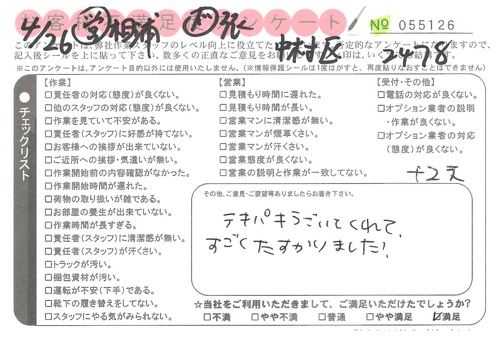 4/26
No 055126
中村区 24-18
このアンケートは、弊社作業スタッフのレベル向上に役立てた
記入後シールを上に貼って下さい。
※このアンケートは、アンケート目的以外には使用いたしません。(※情報保護シールは1度はがすと、再度貼りなおすことはできません)
チェックリスト
【作業】
□責任者の対応(態度)が良くない。
□他のスタッフの対応(態度)が良くない。
□作業を見ていて不安がある。
□責任者(スタッフ)に好感が持てない。
□お客様への挨拶が出来ていない。
□ご近所への挨拶・気遣いが無い。
□作業開始前の内容確認がなかった。
□作業開始時間が遅れた。
□荷物の取り扱いが雑である。
□お部屋の養生が出来ていない。
□作業時間が長すぎる。
□責任者(スタッフ)に清潔感が無い。
□責任者(スタッフ)が汗くさい。
□トラックが汚い。
□梱包資材が汚い。
□運転が不安(下手)である。
□靴下の履き替えをしてない。
□スタッフにやる気がみられない。
【営業】
□見積もり時間に遅れた。
□見積もり時間が長い。
□営業マンに清潔感が無い。
□営業マンが煙草くさい。
□営業マンが汗くさい。
□営業態度が良くない。
□営業の説明と作業が一致してない。
【受付・その他】
□電話の対応が良くない。
□オプション業者の説明
・作業が良くない。
□オプション業者の対応
(態度)が良くない。
その他、ご意見・ご要望等ありましたらお書き下さい。
テキパキうごいてくれて、
すごくたすかりました!
☆当社をご利用いただきまして、ご満足いただけたでしょうか?
□不満 □やや不満 □普通 □やや満足 ☑満足